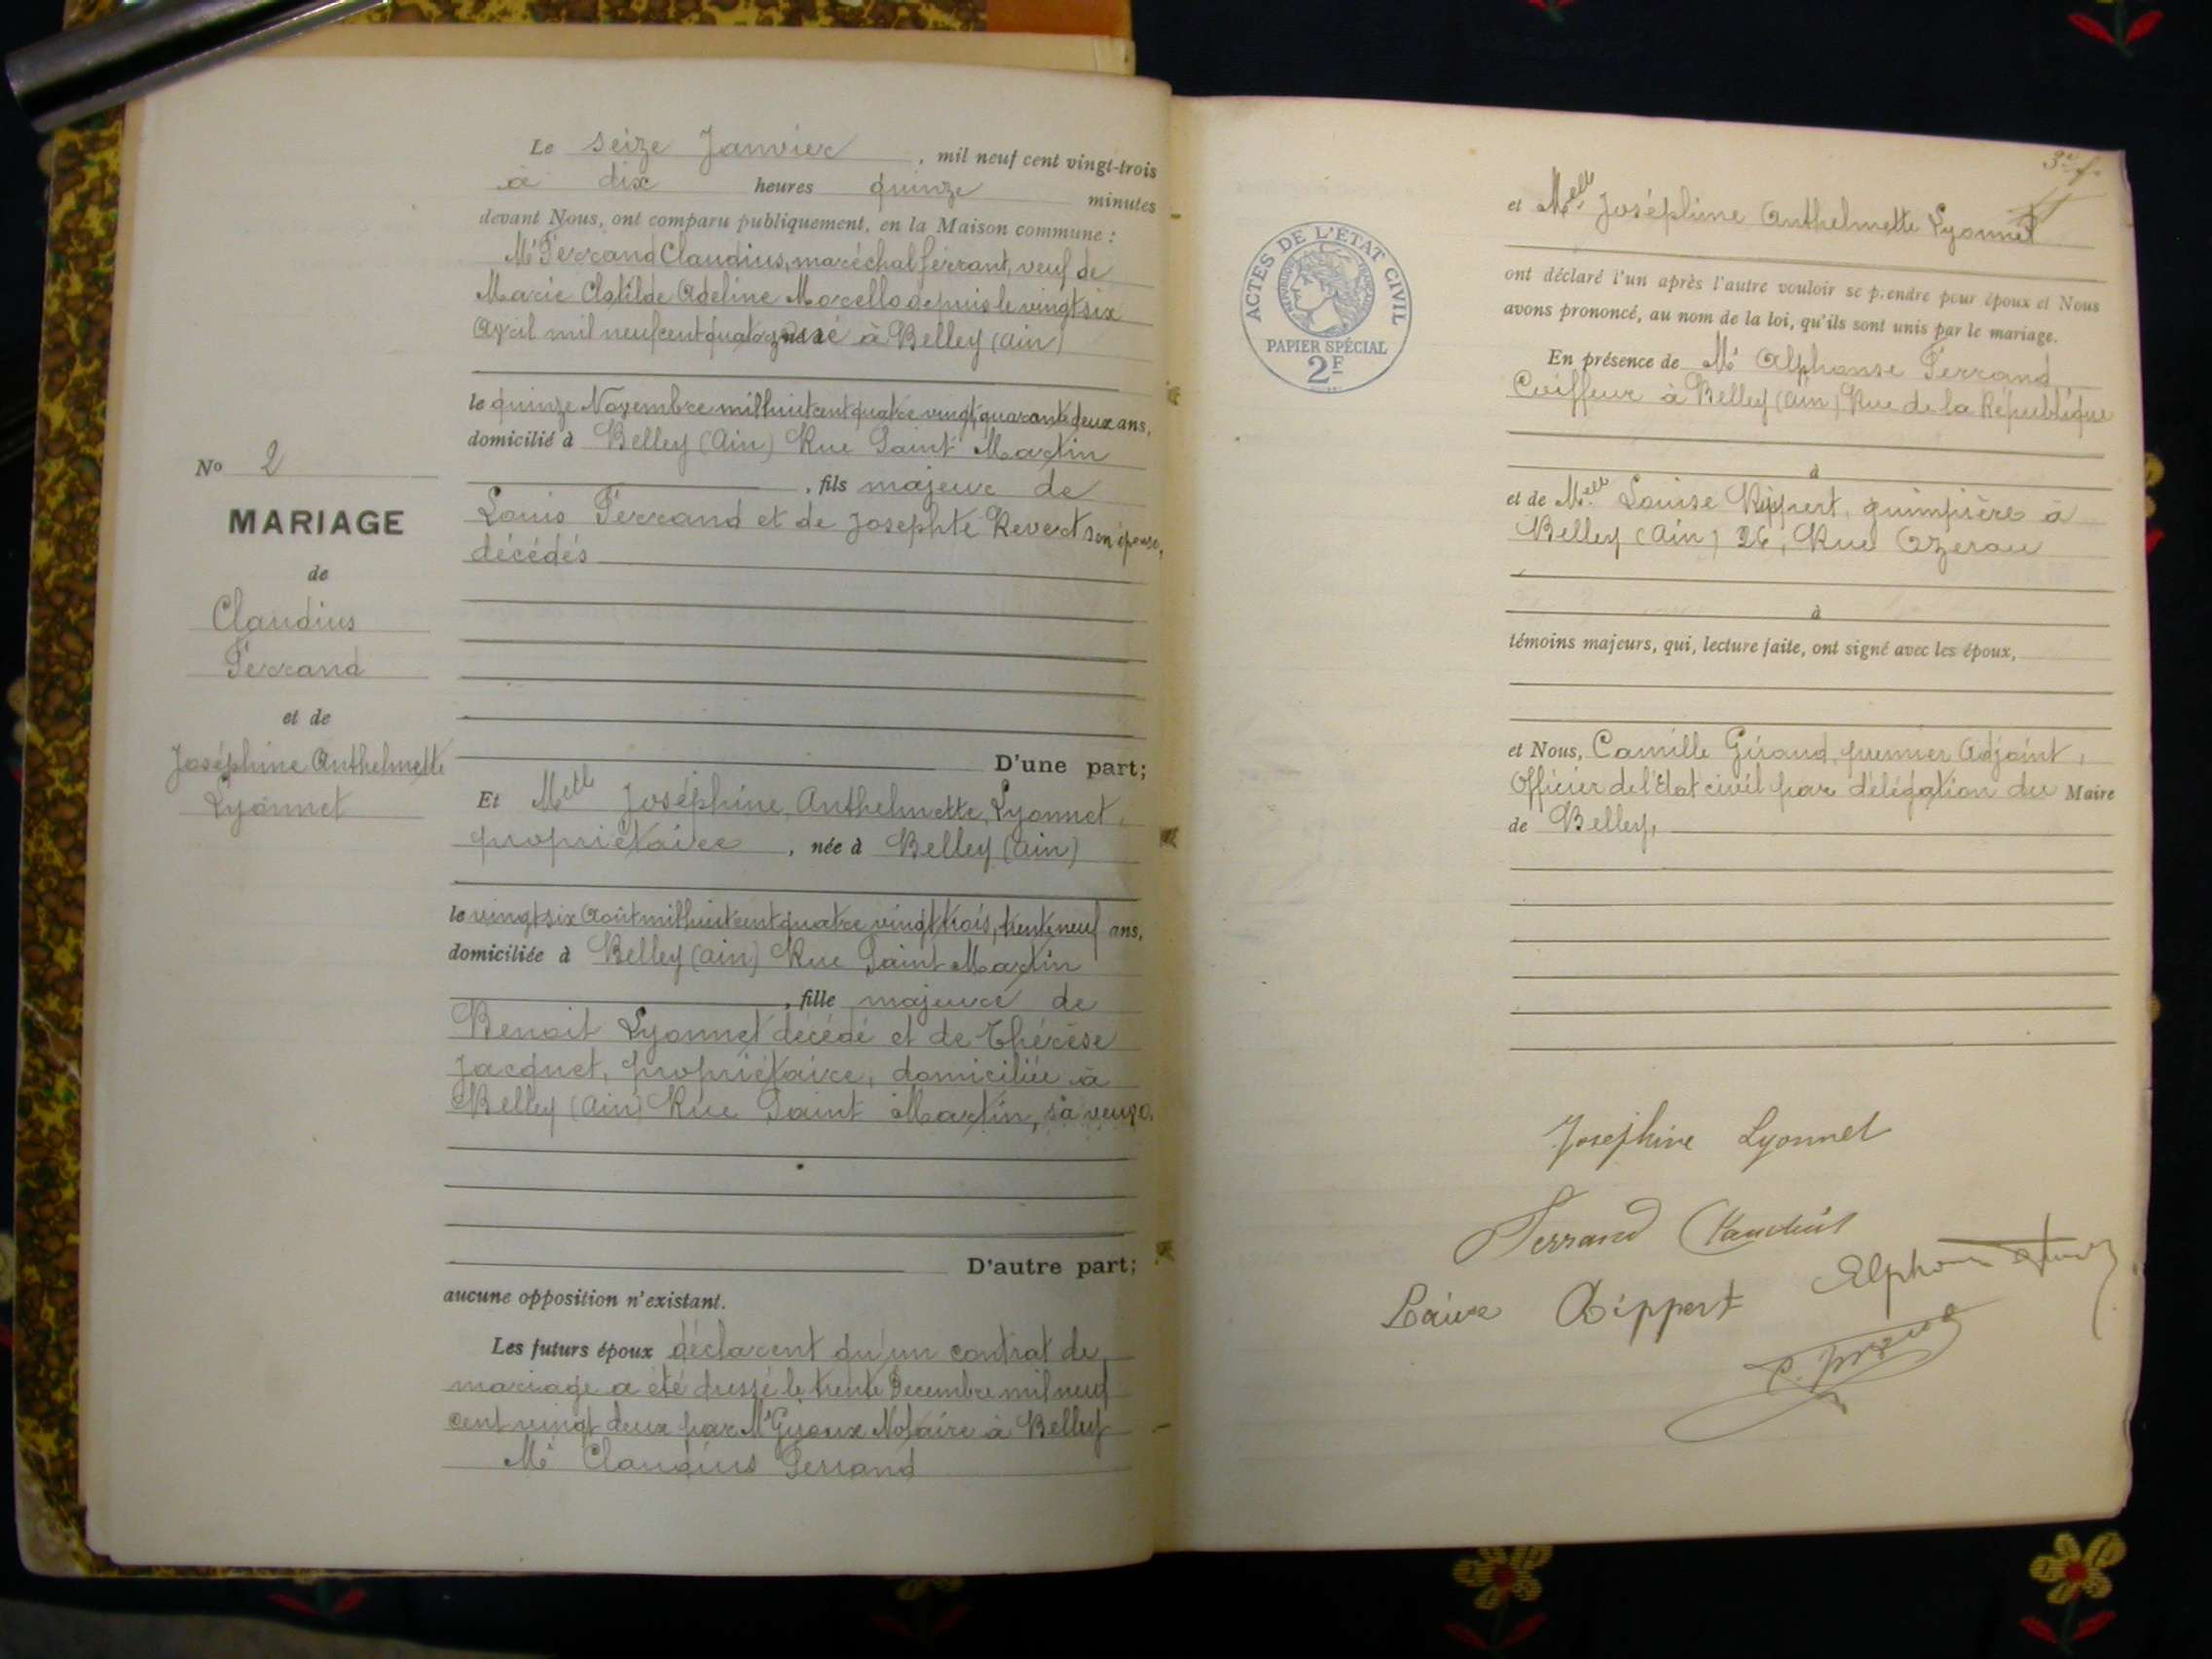 Le seize Janvier, mil neuf cent vingt-trois
à dix heures quinze minutes
devant Nous, ont comparu publiquement, en la Maison commune :
Mr Ferrand Claudius, maréchal ferrant, veuf de
Marie Clotilde Adeline Morcello depuis le vingt six
Avril mil neuf cent quatorze né à Belley (Ain)
le quinze Novembre mil huit cent quatre vingt, quarante deux ans,
domicilié à Belley (Ain) Rue Saint Martin
, fils majeur de
Louis Ferrand et de Josephte Revert son épouse,
décédés
No 2
MARIAGE
de
Claudius
Ferrand
et de
Joséphine Anthelmette
Lyonnet
D'une part;
Et Melle Joséphine, Anthelmette, Lyonnet,
propriétaire, née à Belley (Ain)
le vingt six Août mil huit cent quatre vingt trois, trente neuf ans,
domiciliée à Belley (Ain) Rue Saint Martin
, fille majeure de
Benoit Lyonnet décédé et de Thérèse
Jacquet, propriétaire, domiciliée à
Belley (Ain) Rue Saint Martin, sa veuve.
D'autre part;
aucune opposition n'existant.
Les futurs époux déclarent qu'un contrat de
mariage a été dressé le trente Décembre mil neuf
cent vingt deux par Me Notaire à Belley
Mr Claudius Ferrand
3e f.
ACTES DE L'ÉTAT CIVIL
RÉPUBLIQUE FRANÇAISE
PAPIER SPÉCIAL
2F
et Melle Joséphine Anthelmette Lyonnet
ont déclaré l'un après l'autre vouloir se prendre pour époux et Nous
avons prononcé, au nom de la loi, qu'ils sont unis par le mariage.
En présence de Mr Alphonse Ferrand
Coiffeur à Belley (Ain) Rue de la République
à
et de Melle Louise Rippert, guimpière à
Belley (Ain) 26, Rue
à
témoins majeurs, qui, lecture faite, ont signé avec les époux,
et Nous, Camille Giraud, premier Adjoint,
Officier de l'état civil par délégation du Maire
de Belley,
Josephine Lyonnet
Ferrand Claudius
Alphonse
Rippert